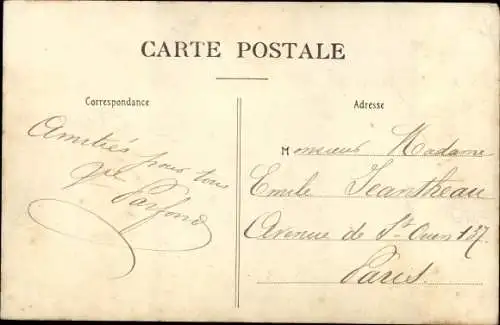 CARTE POSTALE
Correspondance
Amitiés pour tous
Parfond
Adresse
Monsieur Madame
Emile Jeantheau
Avenue de St Ouen 137
Paris